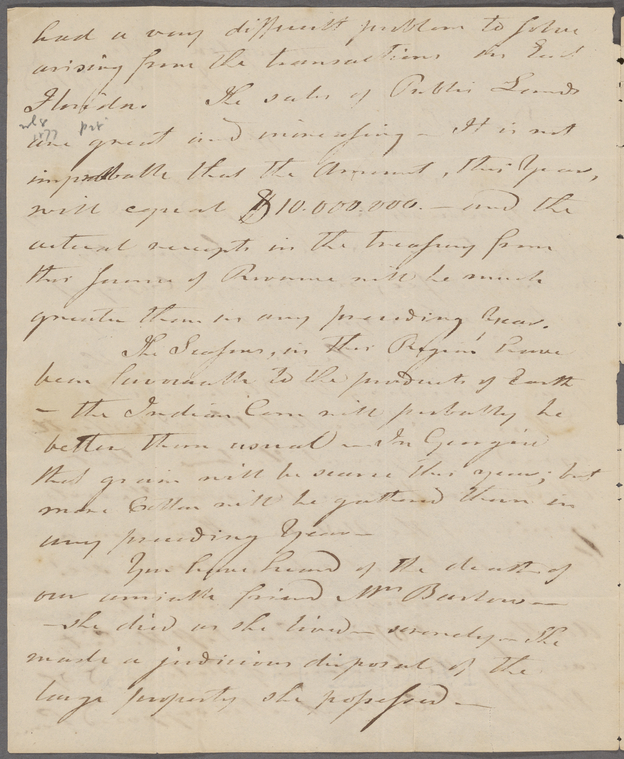 had a very difficult problem to solve
arising from the transactions in East
Florida. The sales of Public Lands
are great and increasing – It is not
improbable that the Amount, this Year,
will equal $10.000.000. – and the
actual receipts in the treasury from
this source of Revenue will be much
greater than in any preceding Year.
The Seasons, in this Region have
been favourable to the products of Earth
– the Indian Corn will probably be
better than usual – In Georgia
that grain will be scarce this year; but
more Cotton will be gathered than in
any preceding Year –
You have heard of the death of
our amiable friend Mrs Barlow –
– she died as she lived – serenely – She
made a judicious disposal of the
large property she possessed –